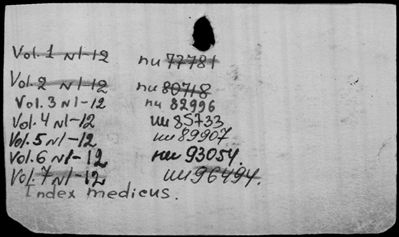 Vol. 1 N1-12 nu 77781
Vol. 2 N1-12 nu 80718
Vol. 3 N1-12 nu 82996
Vol. 4 N1-12 nu 85733
Vol. 5 N1-12 nu 89907
Vol. 6 N1-12 nu 93054.
Vol. 7 N1-12 nu 96494.
Index medicus.